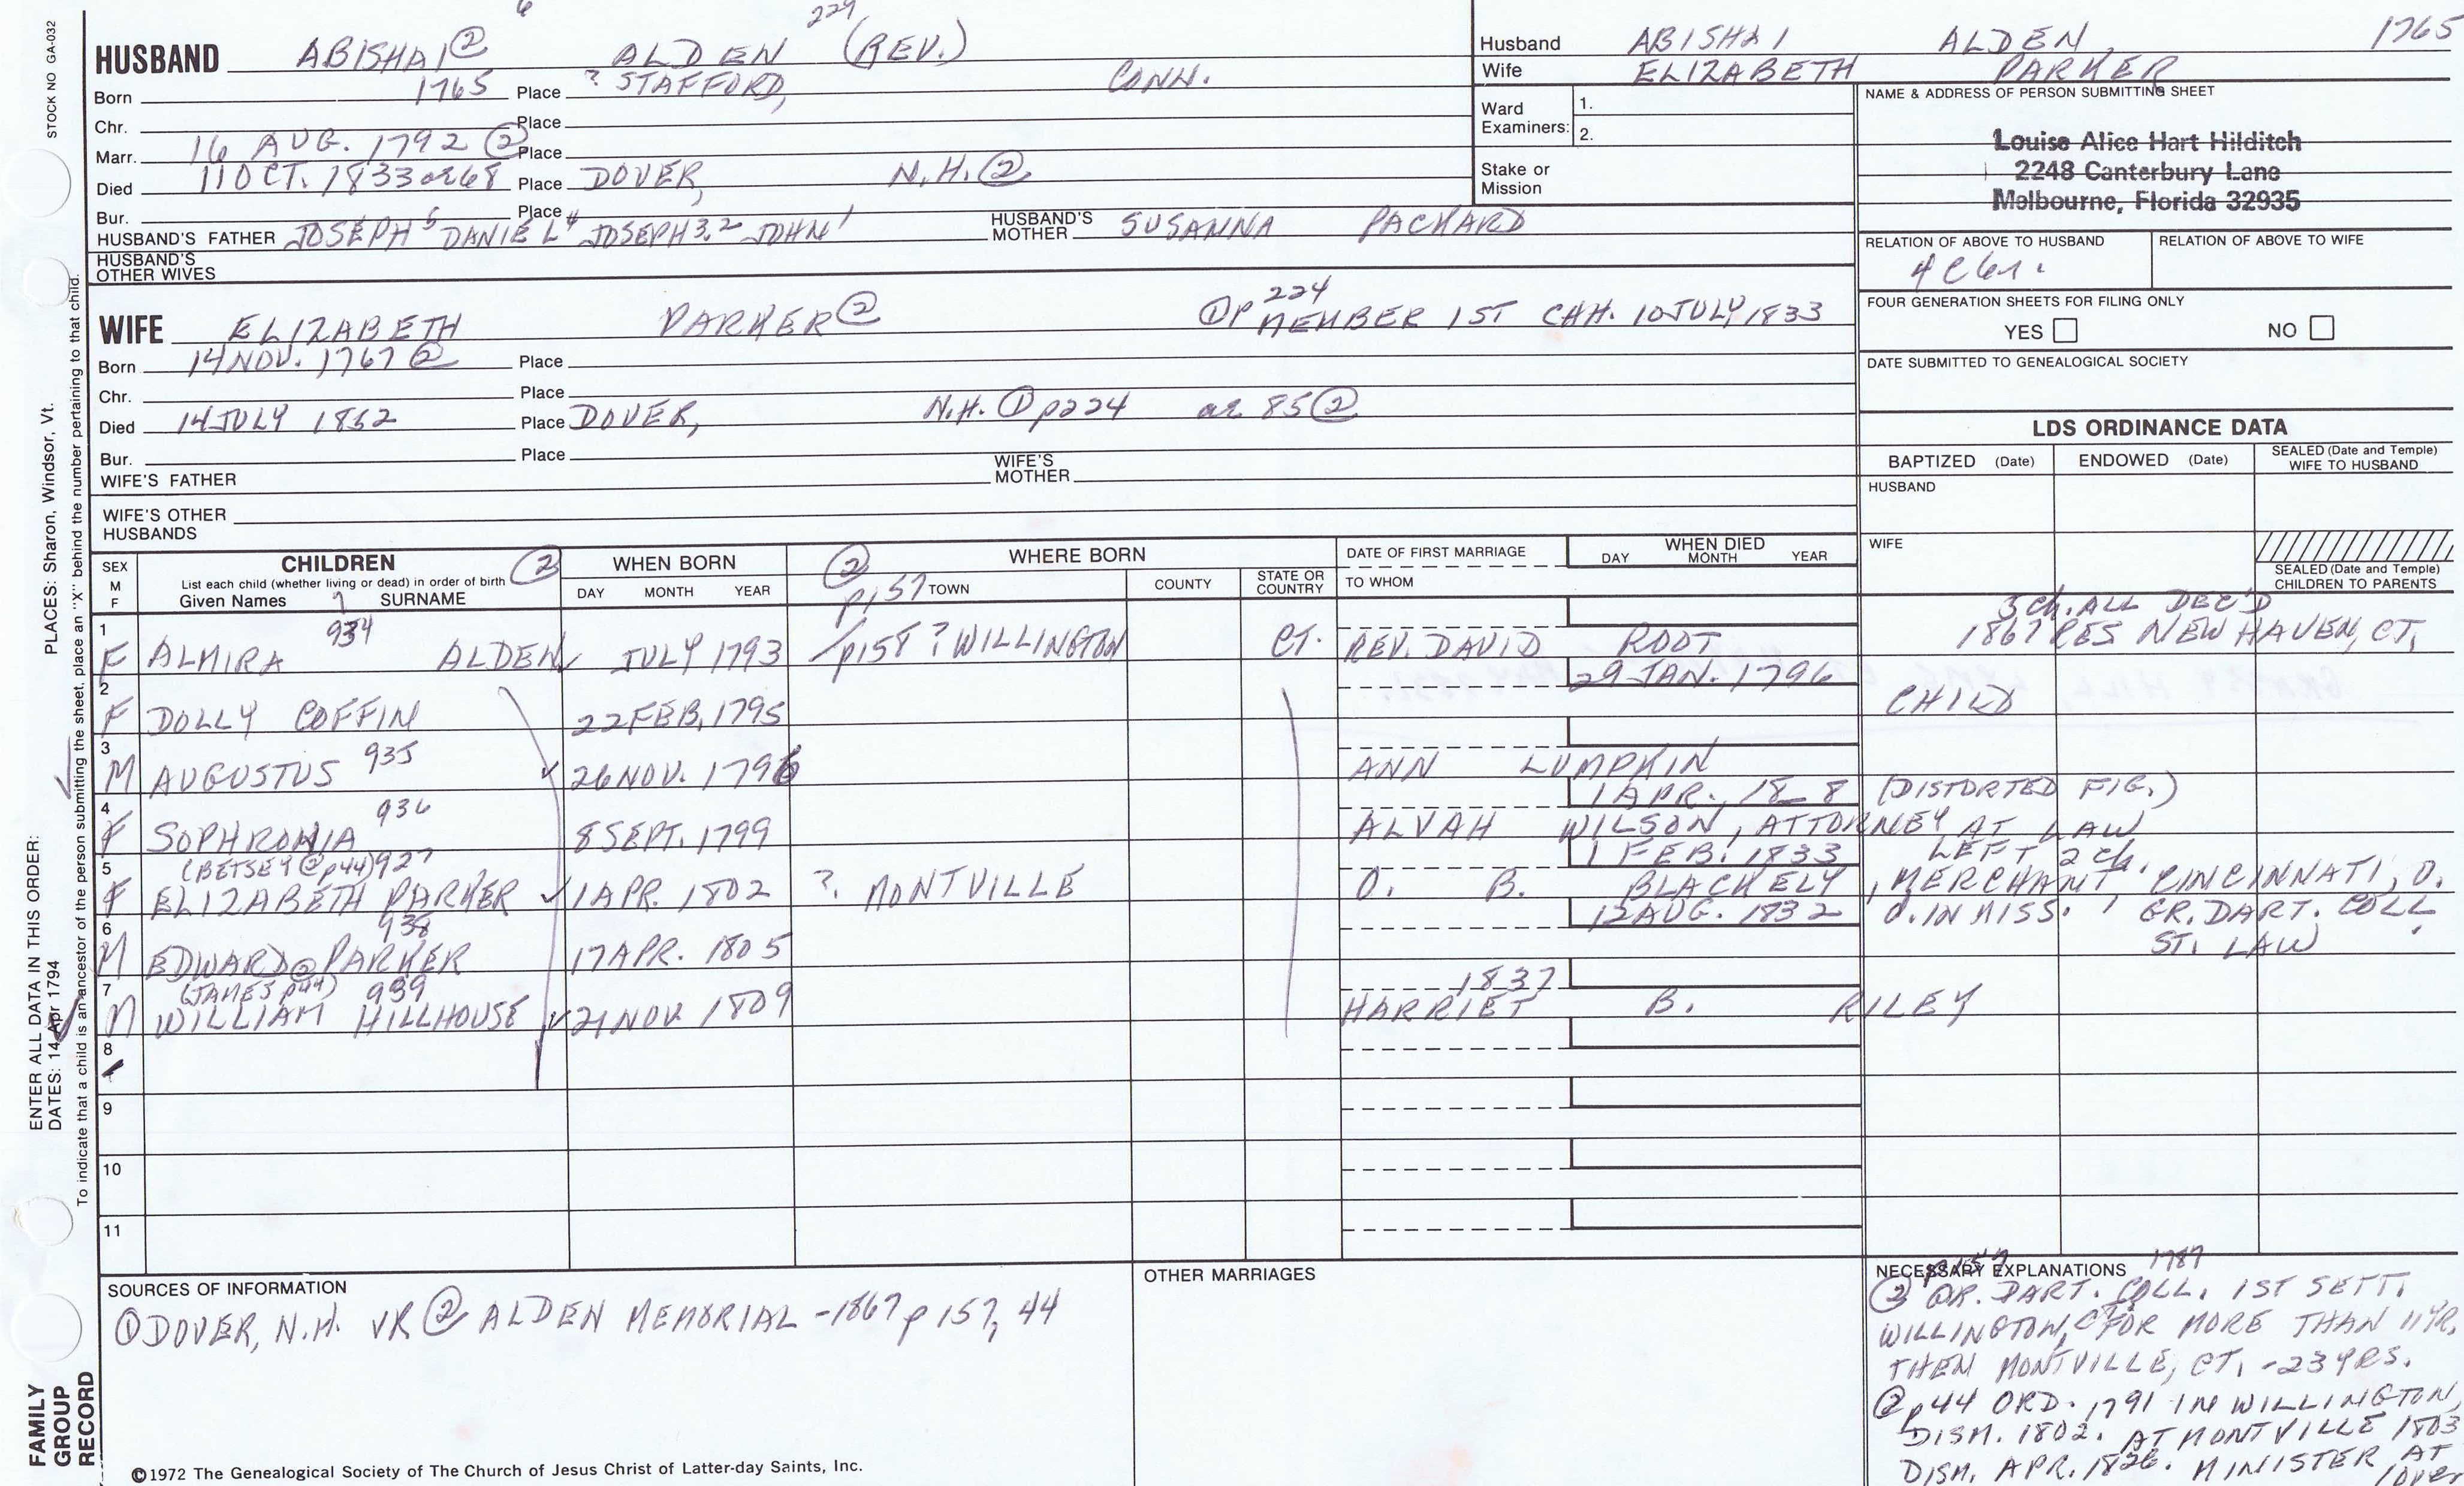 STOCK NO GA-032
PLACES: Sharon, Windsor, Vt.
ENTER ALL DATA IN THIS ORDER:
DATES: 14 Apr 1794
To indicate that a child is an ancestor of the person submitting the sheet, place an "X" behind the number pertaining to that child.
FAMILY GROUP RECORD
6 229
HUSBAND ABISHAI ② ALDEN (REV.)
Born 1765 Place ? STAFFORD, CONN.
Chr. Place
Marr. 16 AUG. 1792 ② Place
Died 11 OCT. 1833 ae 68 Place DOVER, N.H. ②
Bur. Place
HUSBAND'S FATHER JOSEPH 5 DANIEL 4 JOSEPH 3,2 JOHN 1 HUSBAND'S MOTHER SUSANNA PACKARD
HUSBAND'S OTHER WIVES
WIFE ELIZABETH PARKER ② ① P 224 MEMBER 1ST CHH. 10 JULY 1833
Born 14 NOV. 1767 ② Place
Chr. Place
Died 14 JULY 1852 Place DOVER, N.H. ① p224 ae 85 ②
Bur. Place
WIFE'S FATHER WIFE'S MOTHER
WIFE'S OTHER HUSBANDS
Husband ABISHAI ALDEN, 1765
Wife ELIZABETH PARKER
Ward Examiners: 1.
2.
Stake or Mission
NAME & ADDRESS OF PERSON SUBMITTING SHEET
Louise Alice Hart Hilditch
2248 Canterbury Lane
Melbourne, Florida 32935
RELATION OF ABOVE TO HUSBAND RELATION OF ABOVE TO WIFE
4 C 6 r.
FOUR GENERATION SHEETS FOR FILING ONLY
YES NO
DATE SUBMITTED TO GENEALOGICAL SOCIETY
LDS ORDINANCE DATA
BAPTIZED (Date) ENDOWED (Date) SEALED (Date and Temple) WIFE TO HUSBAND
HUSBAND
WIFE
SEALED (Date and Temple) CHILDREN TO PARENTS
SEX M F CHILDREN ② WHEN BORN ② p157 WHERE BORN DATE OF FIRST MARRIAGE WHEN DIED
List each child (whether living or dead) in order of birth
Given Names 7 SURNAME DAY MONTH YEAR TOWN COUNTY STATE OR COUNTRY TO WHOM DAY MONTH YEAR
1 F ALMIRA 934 ALDEN JULY 1793 p158 ? WILLINGTON CT. REV. DAVID ROOT 3 ch. ALL DEC'D
1867 RES NEW HAVEN, CT.
2 F DOLLY COFFIN 22 FEB. 1795 29 JAN. 1796 CHILD
3 M AUGUSTUS 935 26 NOV. 1796 ANN LUMPKIN
4 F SOPHRONIA 936 8 SEPT. 1799 ALVAH WILSON, ATTORNEY AT LAW 1 APR. 18_8 (DISTORTED FIG.)
LEFT 2 ch.
5 F (BETSEY ② p44) 927
ELIZABETH PARKER 1 APR. 1802 ? MONTVILLE O. B. BLACKELY 1 FEB. 1833, MERCHANT CINCINNATI, O.
6 M EDWARD ② PARKER 938 17 APR. 1805 12 AUG. 1832 d. IN MISS. GR. DART. COLL
ST. LAW
7 M (JAMES p44) 939
WILLIAM HILLHOUSE 21 NOV. 1809 1837 HARRIET B. RILEY
8
9
10
11
SOURCES OF INFORMATION
① DOVER, N.H. VR ② ALDEN MEMORIAL - 1867 p 157, 44
OTHER MARRIAGES
NECESSARY EXPLANATIONS
p157 1787
② GR. DART. COLL. 1ST SETT.
WILLINGTON, CT FOR MORE THAN 11 YR.
THEN MONTVILLE, CT. - 23 YRS.
② p44 ORD. 1791 IN WILLINGTON,
DISM. 1802. AT MONTVILLE 1803
DISM. APR. 1826. MINISTER AT
/over
©1972 The Genealogical Society of The Church of Jesus Christ of Latter-day Saints, Inc.